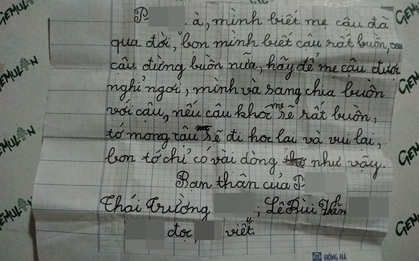 P à, mình biết mẹ cậu đã
qua đời, bọn mình biết cậu rất buồn,
cậu đừng buồn nữa, hãy để mẹ cậu được
nghỉ ngơi, mình và sang chia buồn
với cậu, nếu cậu khóc mẹ sẽ rất buồn,
tớ mong cậu sẽ đi học lại và vui lại,
bọn tớ chỉ có vài dòng như vậy.
Bạn thân của P
Thái Trường ; Lê Bùi Vân
đọc viết.
HỒNG HÀ
GEMUL
GEMUL